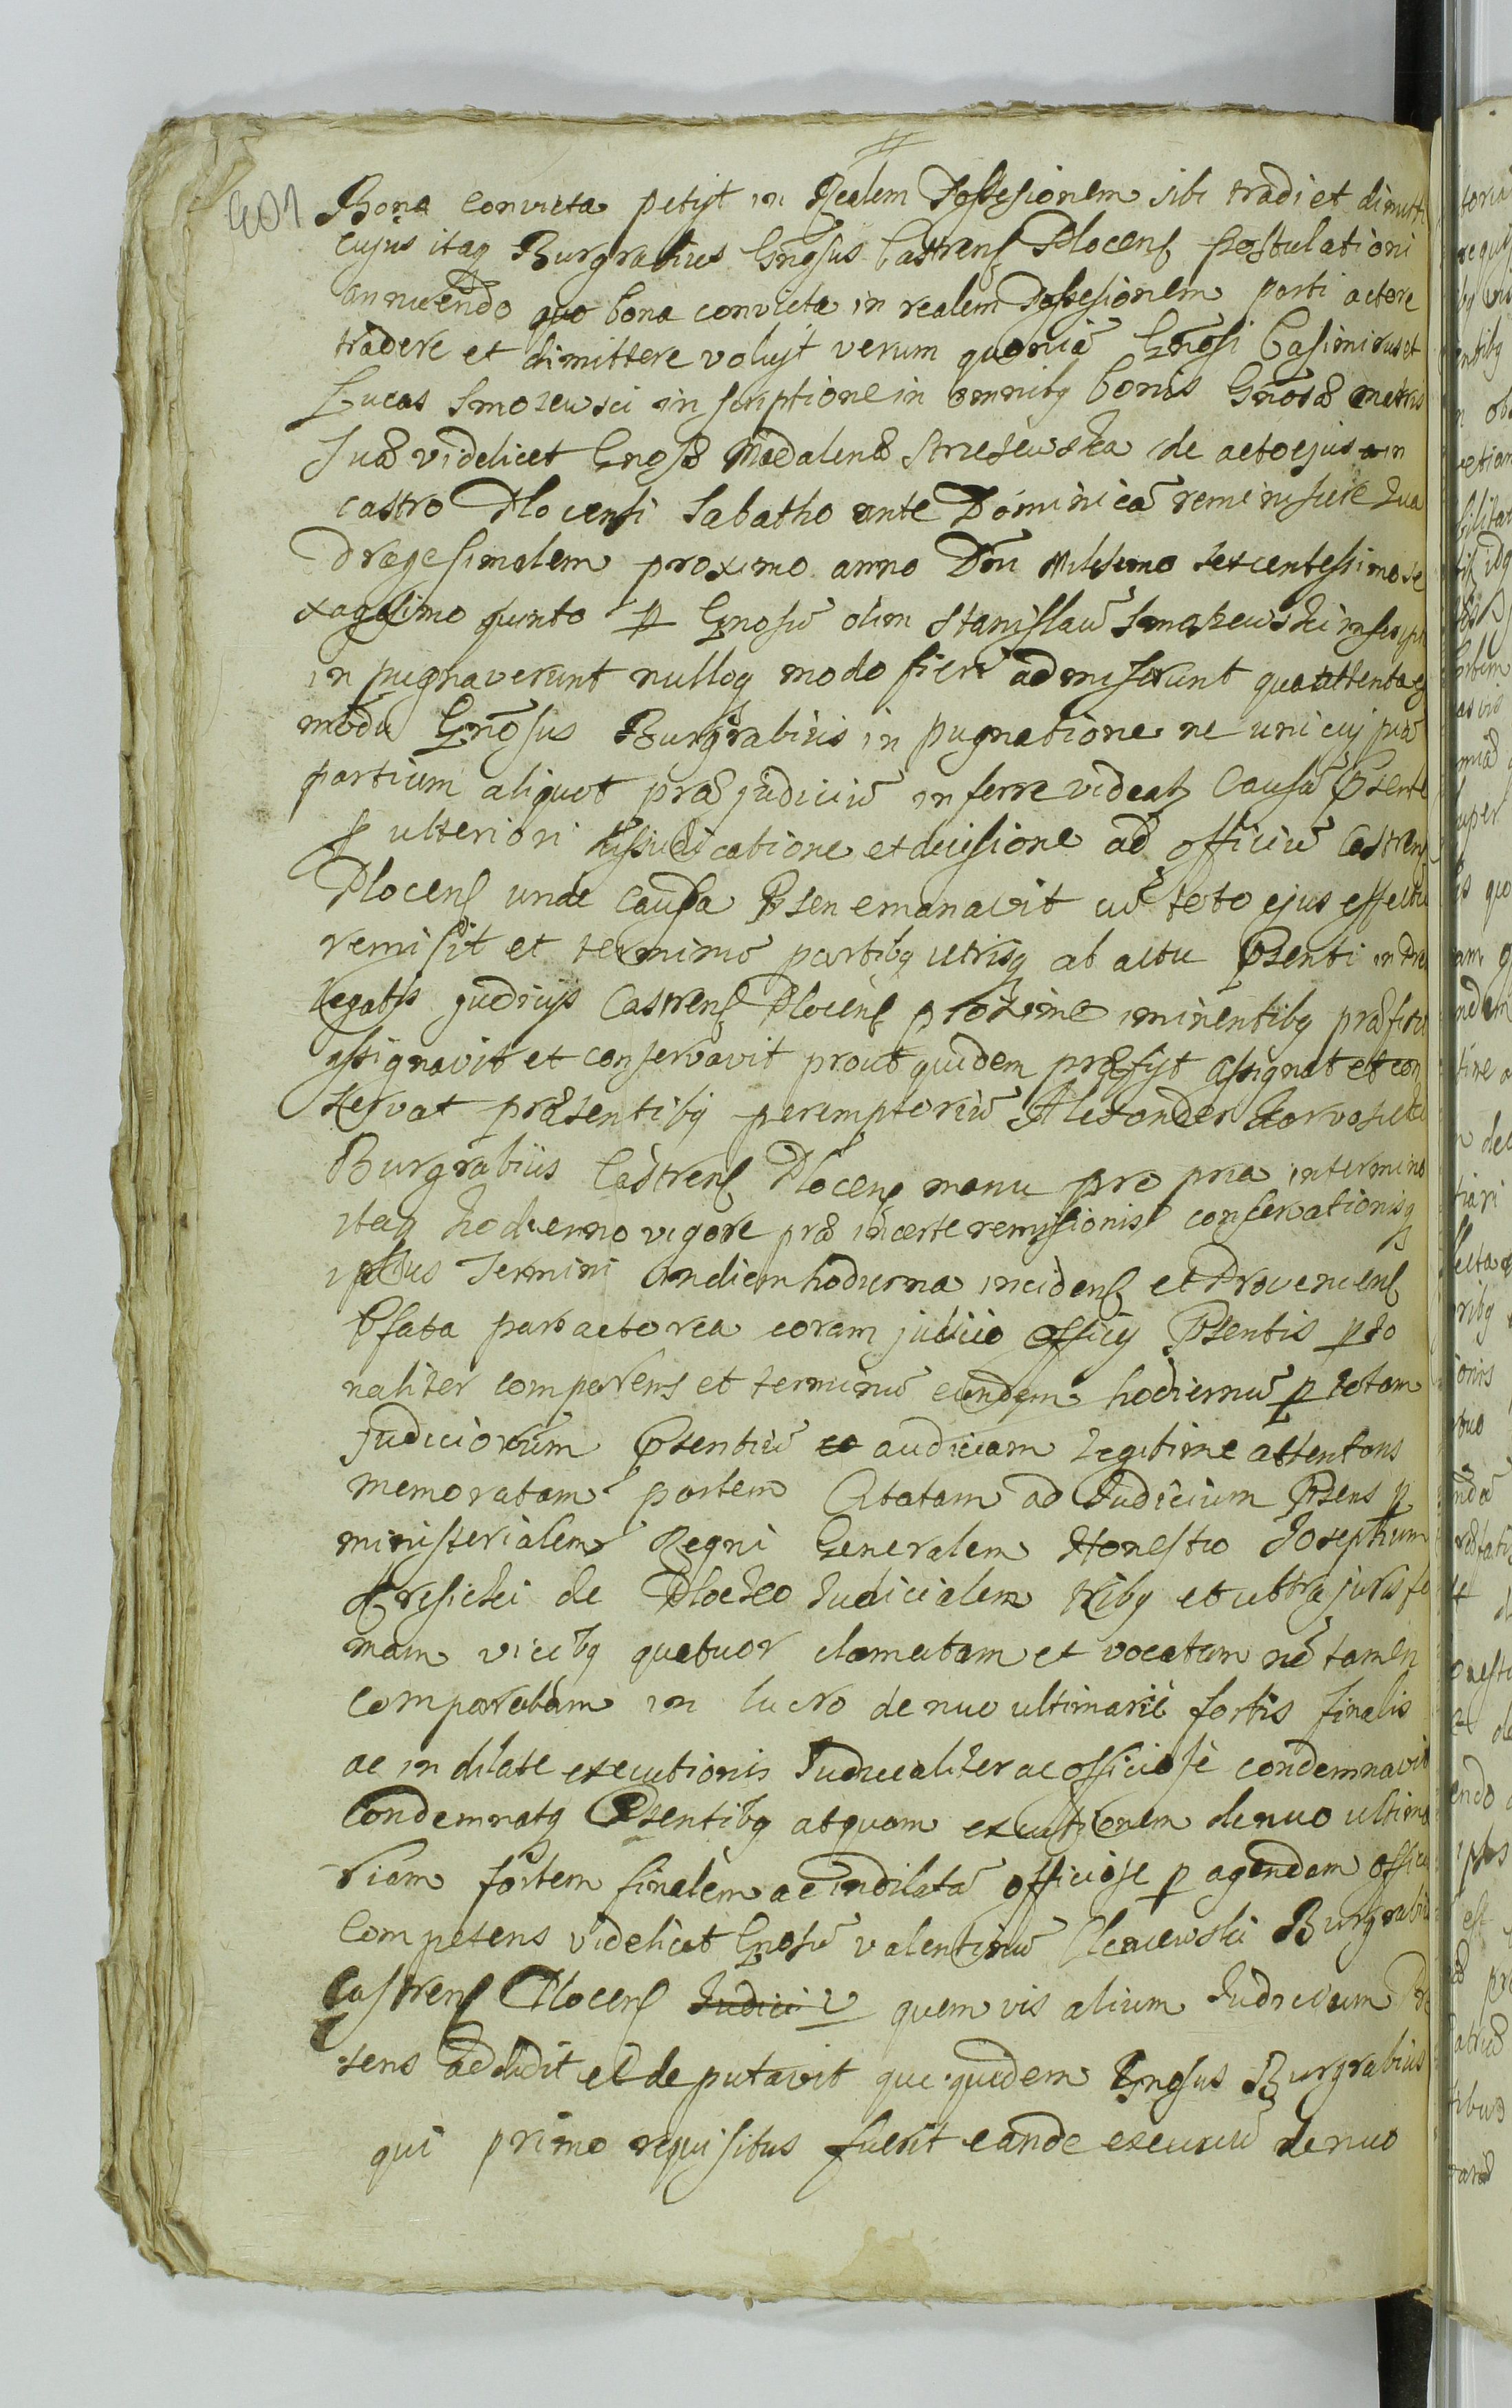 401
Bona convicta petijt in Realem Possesionem sibi tradi et dimitti
cujus itaq Burgrabius Gnosus Castrens Plocens postulationi
annuendo quo bona convicta in realem Possesionem parti actore
tradere et dimittere volujt verum quoniā Gnosi Casimirus et
Lucas Smosewsci inscriptione in omnibq bonis Gnosæ matris
suæ videlicet Gnosæ Madalenæ de acto ejus in
castro Plocensi Sabatho ante Dominicā reminiscere Qua
dragesimalem proximo anno Dni Milesimo sexcentessimo se
xagesimo quinto p Gnosū olim Stanislaū Smosewski
in pugnaverunt nulloq modo fieri admiserunt qua attenta
Gnosus Burgrabius in pugnatione ne unicuj
partium aliquot præjudiciū inferre videat Causā Psente
p ulteriori dijudicatione et decissione ad officiū Castrens
Plocens unde Causa Psen emanavit cū toto ejus effectu
remisit et terminū partibq utrisq ab actu Psenti in
judicijs Castrens Plocens proxime iminentibq
assignavit et conservavit prout quidem præfijt assignat et con
servat præsentibq peremptoriū Alexander
Burgrabius Castrens Plocens manu pro pria in termino
itaq hodierno vigore præ incerte remissionis conservationisq
ipsius Termini in diem hodierna incidens et Proveniens
Psata pars actorea coram judicio officij Psentis pso
naliter comparens et terminū eundem hodiernū p totam
judiciorum Psentiū audiciam legitime attentans
memoratam partem Citatam ad Judicium Psens p
ministerialem Regni Generalem Honestū Josephum
de Plocko Judicialem tribq et ultra juris fo
mam vicibq quatuor clamatam et vocatam nō tamen
comparatam in lucro de nuo ultimarie fortis finalis
ac in dilate executionis Judicialiter ac officiose condemnavit
Condemnatq Psentibq at quam executionem denuo ultima
riam fortem finalem ac indilatā officiose p agendam
Competens videlicet Gnosū Valentinū Burgrabiū
Castrens Plocens Judici V quem vis alium Judicium
sens addidit et deputavit qui quidem Gnosus Burgrabius
qui primo requisitus fuerit eande denuo